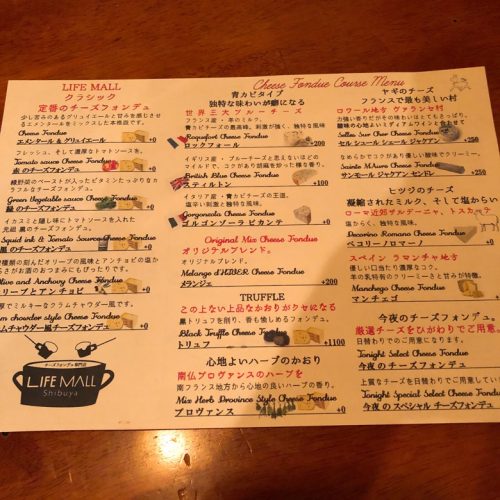 LIFE MALL
クラシック
定番のチーズフォンデュ
少し苦みのあるグリュイエールと甘みを感じさせる
エメンタールをミックスした本格派です。
Cheese Fondue
エメンタール & グリュイエール +0
フレッシュ、そして濃厚なトマトソースを加え
Tomato sauce Cheese Fondue
赤のチーズフォンデュ +0
緑野菜のペーストが入ったビタミンたっぷりなカ
ラフルなチーズフォンデュ。
Green Vegetable sauce Cheese Fondue
緑のチーズフォンデュ +0
イカスミと隠し味にトマトソースを入れた
元祖 黒のチーズフォンデュ。
Squid ink & Tomato Sources Cheese Fondue
黒のチーズフォンデュ +0
種類の刻んだオリーブの風味とアンチョビの塩
らさがお酒のおつまみにもぴったりです。
Olive and Anchovy Cheese Fondue
リーブとアンチョビ +0
厚でミルキーなクラムチャウダー風。
chowder style Cheese Fondue
ムチャウダー風チーズフォンデュ +0
チーズフォンデュ専門店
LIFE MALL
Shibuya
Cheese Fondue Course Menu
青カビタイプ
独特な味わいが癖になる
世界三大ブルーチーズ
フランス産・羊のミルク。
青カビチーズの最高峰。刺激が強く、独特な風味
Roquefort Cheese Fondue
ロックフォール +0
イギリス産・ブルーチーズと思えないほどの
マイルドで、コクがあり胡桃を炒った様な香り。
British Blue Cheese Fondue
スティルトン +0
イタリア産・青カビチーズの王道。
塩辛い刺激と、独特な風味。
Gorgonzola Cheese Fondue
ゴルゴンゾーラ ピカンテ +0
Original Mix Cheese Fondue
オリジナルブレンド。
オリジナルブレンド。
Melange d'HIBER Cheese Fondue
メランジェ +0
TRUFFLE
この上ない上品なかおりがクセになる
黒トリュフを削り、香も愉しめるフォンデュ。
Black Truffle Cheese Fondue
トリュフ +1100
心地よいハーブのかおり
南仏プロヴァンスのハーブを
南フランス地方から心地の良いハーブの香り。
Mix Herb Province Style Cheese Fondue
プロヴァンス +0
ヤギのチーズ
フランスで最も美しい村
ロワール地方 ヴァランセ村
力強い香りだがその味わいはとてもさっぱり。
酸味の心地よいミディアムワインと
Selles Sur Cher Cheese Fondue
セル シュール シェール ジャケアン +0
なめらかでコクが有り優しい酸味でクリーミー。
Sainte Maure Cheese Fondue
サンモール ジャケアン センドレ +0
ヒツジのチーズ
凝縮されたミルク、そして塩辛さ
ローマ近郊サルデーニャ、トスカーナ
塩からく、後味に甘味。
Pecorino Romano Cheese Fondue
ペコリーノロマーノ
スペイン ラマンチャ地方
優しい口当たりで濃厚なコク。
羊の乳特有のクリーミーさと甘みが特徴。
Manchego Cheese Fondue
マンチェゴ
今夜のチーズフォンデュ。
厳選チーズをひがわりでご用意
日替わりでのご用意になります。
Tonight Select Cheese Fondue
今夜のチーズフォンデュ
上質なチーズを日替わりでご用意
Tonight Special Select Cheese Fondue
今夜の スペシャル チーズフォンデュ